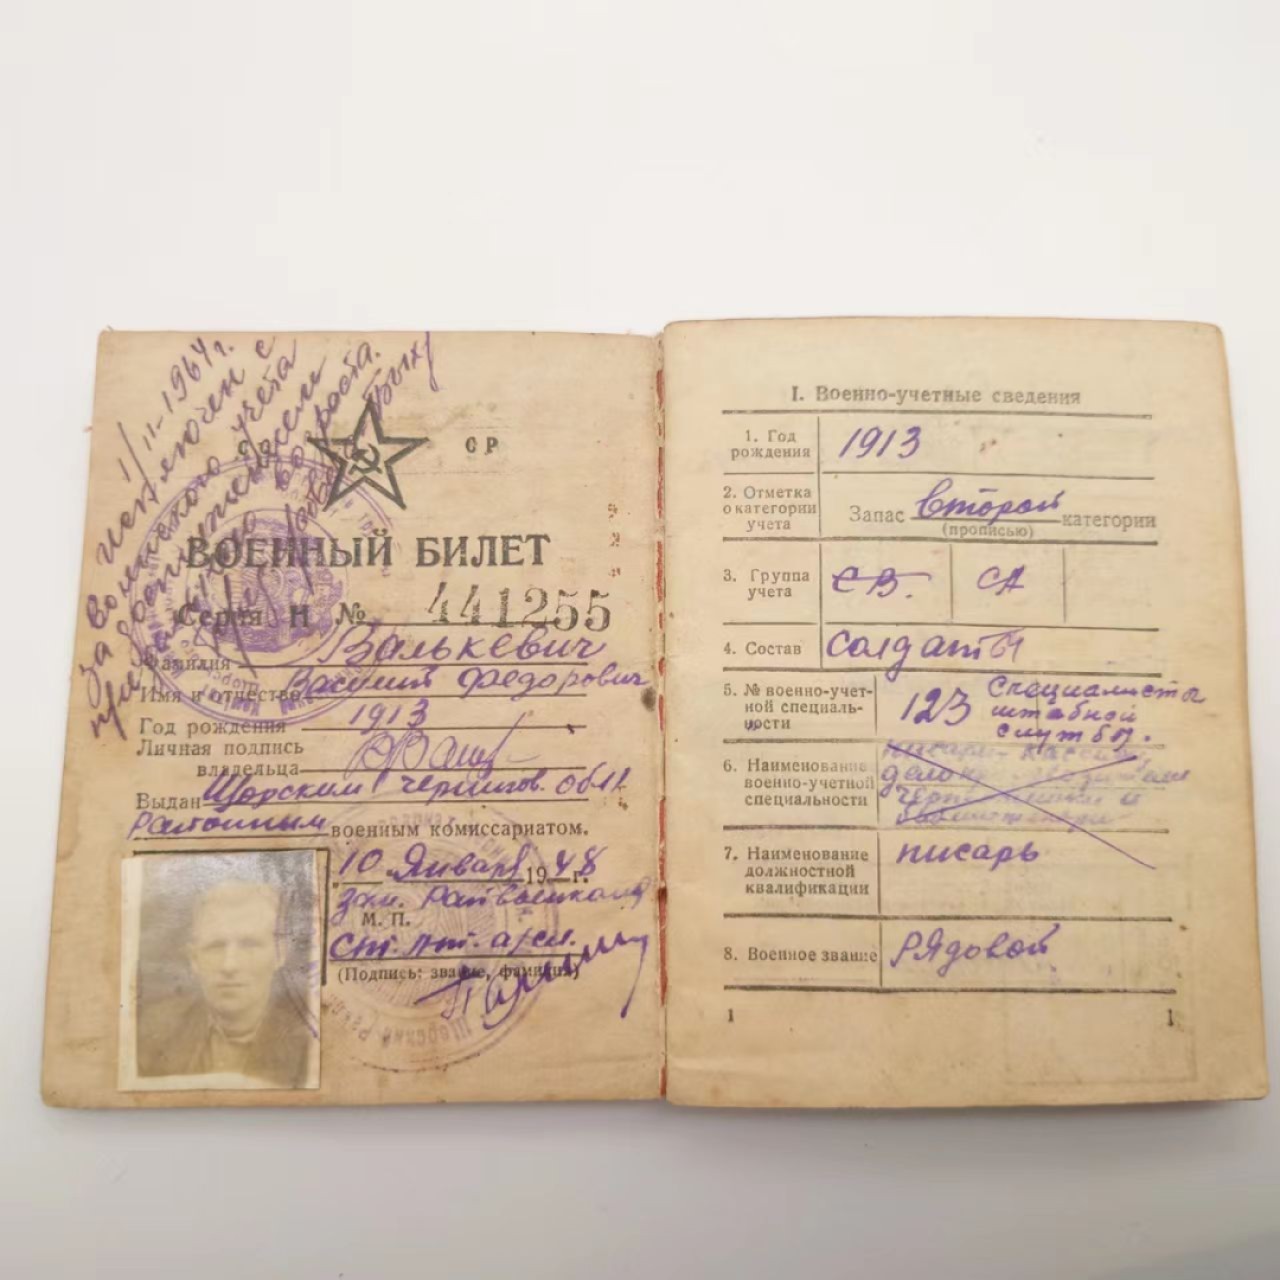 1/II-1964г.
исключен с
воинского учета
за достижением
предельного возраста.
С СР
ВОЕННЫЙ БИЛЕТ
Серия Н № 441255
Фамилия Валькевич
Имя и отчество Василий Федорович
Год рождения 1913
Личная подпись
владельца
Выдан Щорским Чернигов. обл.
районным военным комиссариатом.
10 Января 1948 г.
Зам. Райвоенкома
М. П.
ст. л-т. а/сл.
(Подпись: звание, фамилия)
I. Военно-учетные сведения
1. Год
рождения
1913
2. Отметка
о категории
учета
Запас второй категории
(прописью)
3. Группа
учета
СВ. СА
4. Состав солдаты
5. № военно-учет-
ной специаль-
ности
123 Специалисты
штабной
службы.
6. Наименование
военно-учетной
специальности
писари-кассиры
делопроизводители
чертежники и
7. Наименование
должностной
квалификации
писарь
8. Военное звание рядовой
1 1